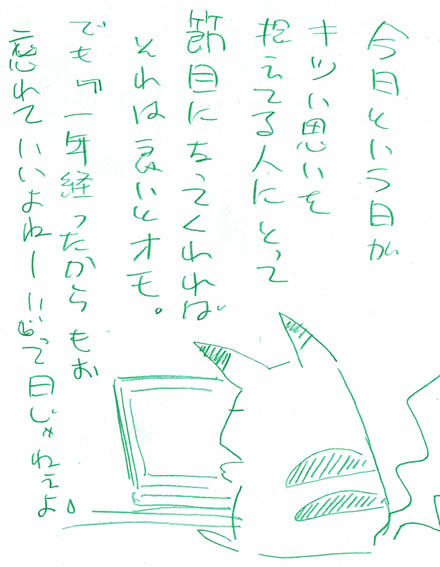 今日という日が
キツい思いを
抱えてる人にとって
節目になってくれれば
それは良いとオモ。
でも『一年経ったからもお
忘れていいよねー!!』って日じゃねぇよ